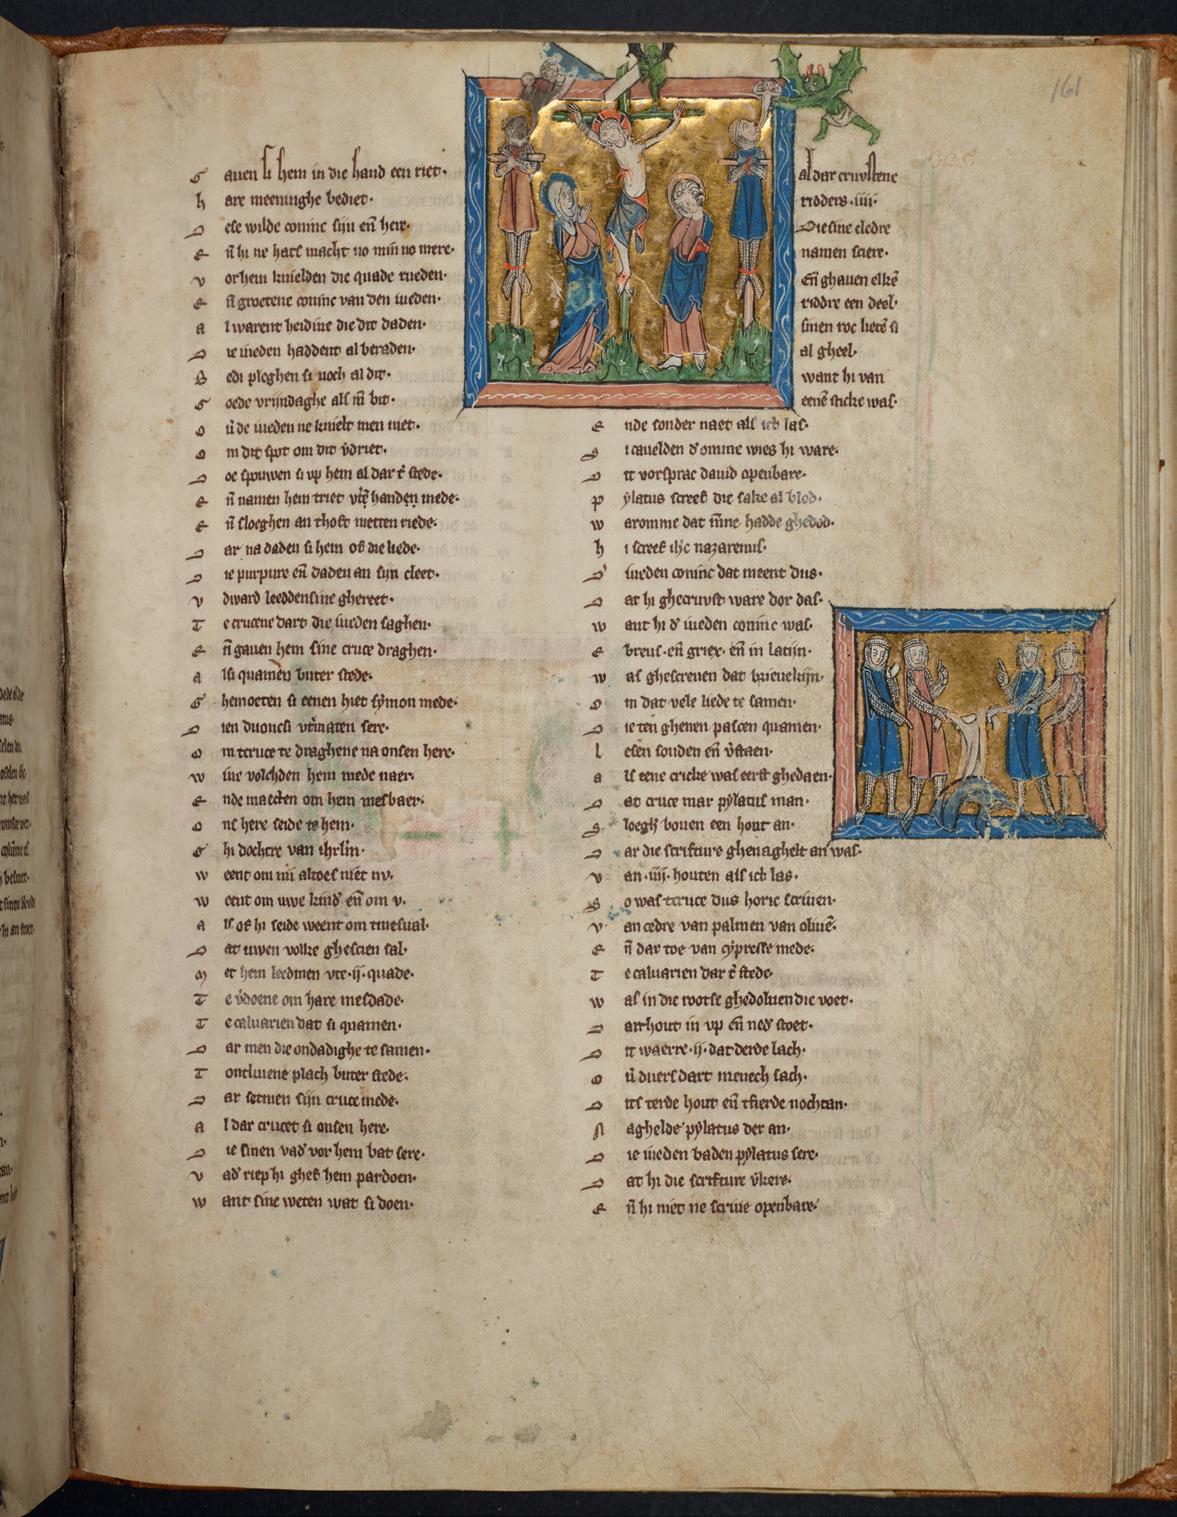 161
G auen si hem in die hand een riet·
h are meeninghe bediet·
D ese wilde coninc sijn eñ here·
E ñ hi ne hats macht no min no mere·
V or hem knielden die quade iueden·
E ñ groetene coninc van den iueden·
A l warent heidine die dit daden·
D ie iueden haddent al beraden·
B edi pleghen si noch al dit·
G oede vrijndaghe als m̄ bit·
O ū de iueden ne knielt men niet·
O m dit spot om dit v̄driet·
D oe spuwen si up hem al dar t̄ stede·
E ñ namen hem triet uten handen mede·
E ñ sloeghen an thoft metten riede·
D ar na daden si hem of die liede·
D ie purpure eñ daden an sijn cleet·
V dward leeddensine ghereet·
T e crucene dart die iueden saghen·
E ñ gauen hem sine cruce draghen·
A lsi quamen buter stede·
G hemoeten si eenen hiet symon mede·
D ien duongsi utermaten sere·
O m tcruce te draghene na onsen here·
W iue volchden hem mede naer·
E nde maecten om hem mesbaer·
O ns here seide te hem·
G hi dochtre van ihrlm·
W eent om mi altoes niet nv·
W eent om uwe kind' eñ om v·
A ls of hi seide weent om tmesual·
D at uwen volke ghescien sal·
M et hem leedmen vte ·ij· quade·
T e v̄doene om hare mesdade·
T e caluarien dat si quamen·
D ar men die ondadighe te samen·
T ontliuene plach buter stede·
D ar setmen sijn cruce mede·
A l dar crucet si onsen here·
D ie sinen vad' vor hem bat sere·
V ad' riep hi ghef hem pardoen·
W ant sine weten wat si doen·
al dar cruusten e
ridders ·iiij·
Die sine cledre
namen sciere·
Eñ ghauen elkē
riddre een deel·
sinen roc lietē si
al gheel·
want hi van
eenē sticke was·
E nde sonder naet als ick las·
S i cauelden d'omme wies hi ware·
D it vorsprac dauid openbare·
P ylatus screef die sake al blod·
W aromme dat m̄ne hadde ghedod·
h i screef ihc nazarenus·
D' iueden coninc dat meent dus·
D at hi ghecruust ware dor das·
W ant hi d' iueden coninc was·
E breus· eñ griex· eñ in latijn·
W as ghescreuen dat brieuekijn·
O m dat vele liede te samen·
D ie ten ghenen pascen quamen·
L esen souden eñ v̄staen·
A ls eene cricke was eerst ghedaen·
D at cruce mar pylatus man·
S loegh bouen een hout an·
D ar die scrifture ghenaghelt an was·
V an ·iiij· houten als ick las·
S o was tcruce dus horic scriuen·
V an cedre van palmen van oliuē·
E ñ dar toe van cypresse mede·
T e caluarien dar t̄ stede·
W as in die rootse ghedoluen die voet·
D art hout in up eñ ned' stoet·
D it waerre ·ij· dat derde lach·
O ū duers dart menech sach·
D its terde hout eñ tfierde nochtan·
N aghelde pylatus der an·
D ie iueden baden pylatus sere·
D at hi die scrifture v̄kere·
E ñ hi niet ne scriue openbare·